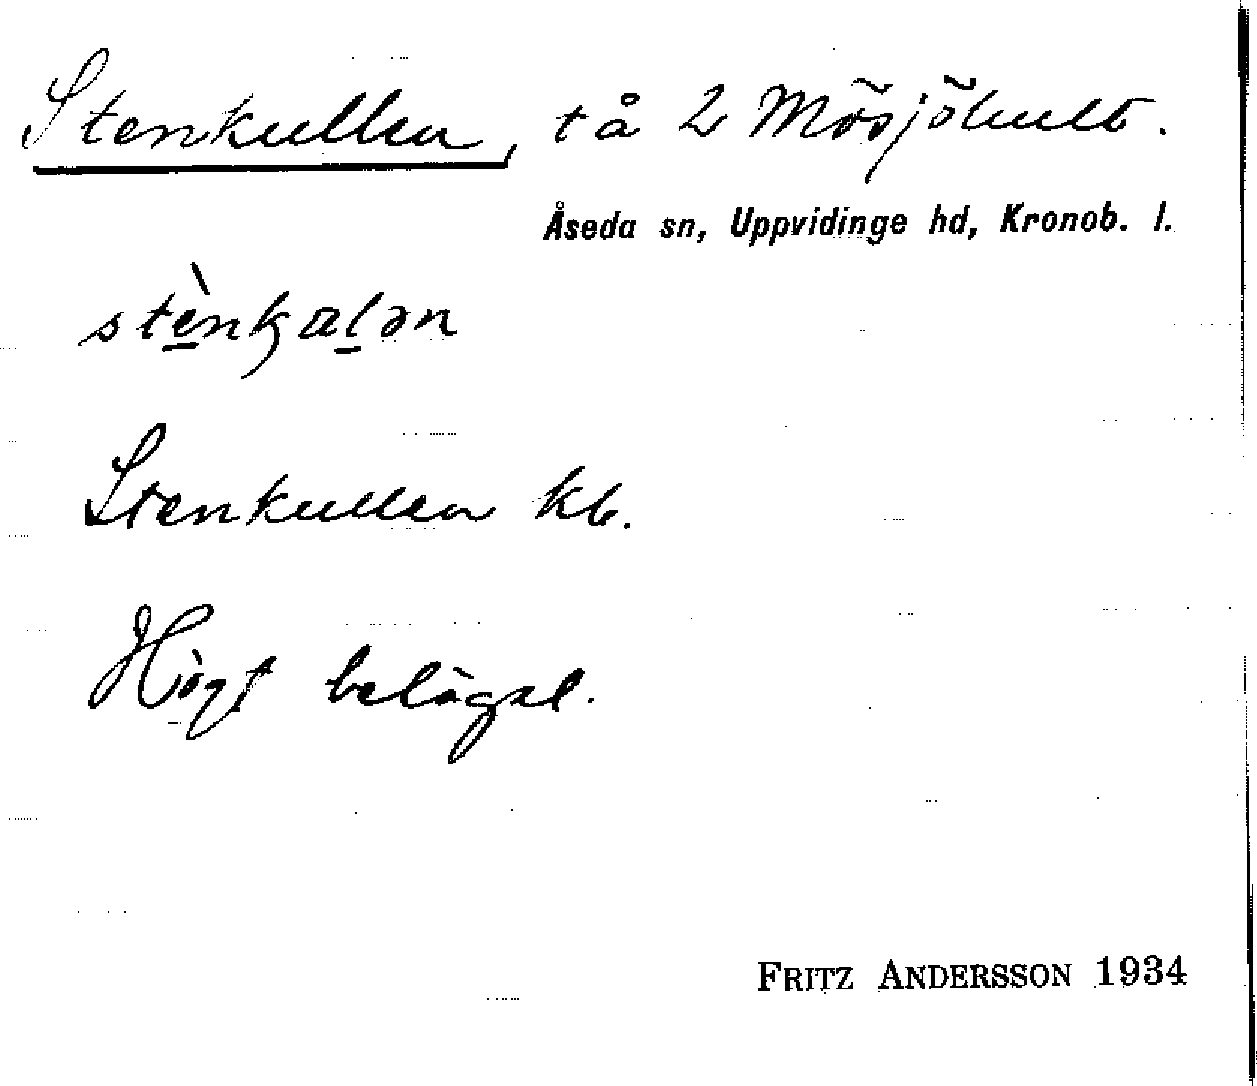 Stenkullen, t å 2 Mösjöhult.
Åseda sn, Uppvidinge hd, Kronob. l.
Stenkullen kb.
Högt belägal.
FRITZ ANDERSSON 1934